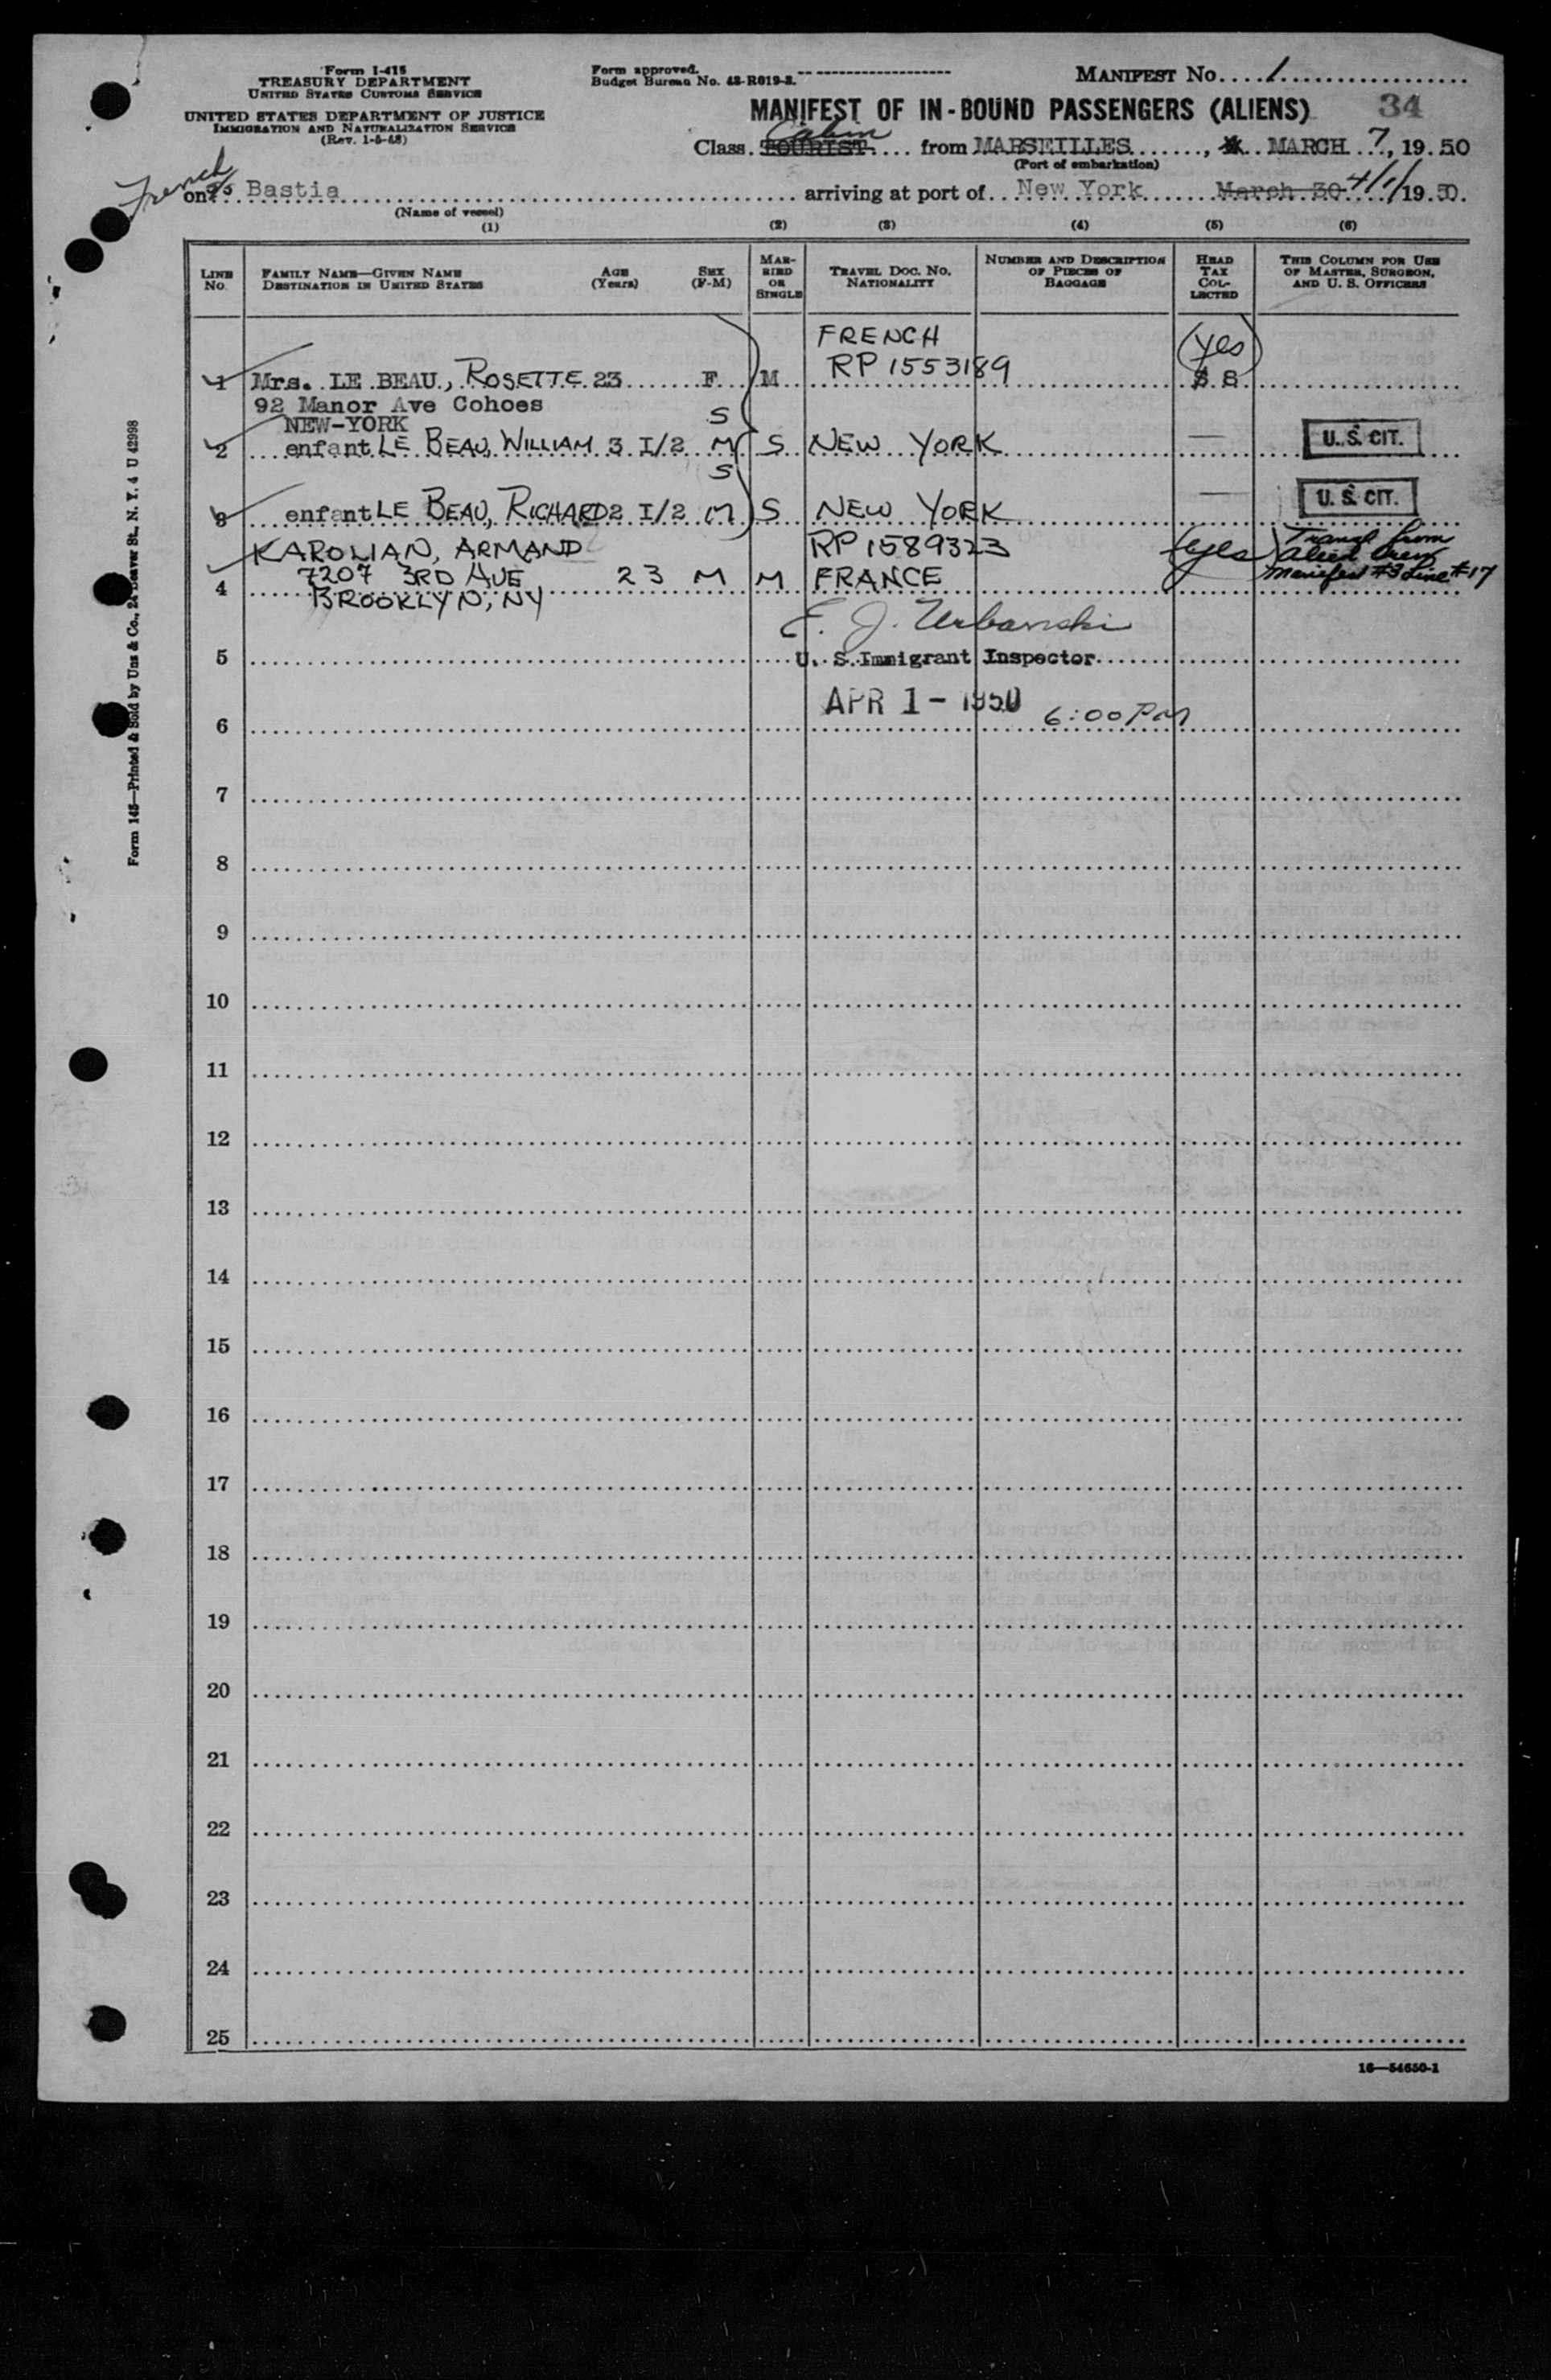 Form I-415
TREASURY DEPARTMENT
UNITED STATES CUSTOMS SERVICE
UNITED STATES DEPARTMENT OF JUSTICE
IMMIGRATION AND NATURALIZATION SERVICE
(Rev. 1-5-48)
Form approved.
Budget Bureau No. 43-R019-2.
MANIFEST No. 1
MANIFEST OF IN-BOUND PASSENGERS (ALIENS) 34
Cabin
Class TOURIST from MARSEILLES, MARCH 7, 1950
(Port of embarkation)
French
on Bastia arriving at port of New York March 30 4/1/1950.
(Name of vessel)
(1) (2) (3) (4) (5) (6)
LINE No. FAMILY NAME—GIVEN NAME DESTINATION IN UNITED STATES AGE (Years) SEX (F-M) MARRIED OR SINGLE TRAVEL DOC. NO. NATIONALITY NUMBER AND DESCRIPTION OF PIECES OF BAGGAGE HEAD TAX COLLECTED THIS COLUMN FOR USE OF MASTER, SURGEON, AND U. S. OFFICERS
FRENCH (yes)
1 Mrs. LE BEAU, ROSETTE 23 F M RP 1553189 $ 8
92 Manor Ave Cohoes
NEW-YORK S
2 enfant LE BEAU, WILLIAM 3 I/2 M S NEW YORK — U. S. CIT.
S
3 enfant LE BEAU, RICHARD 2 I/2 M S NEW YORK — U. S. CIT.
KAROLIAN, ARMAND RP 1589323 (yes) Transf from
4 7207 3RD AVE 23 M M FRANCE alien crew
BROOKLYN, NY manifest #3 Line #17
E. J. Urbanski
5 U. S. Immigrant Inspector
APR 1 - 1950 6:00 PM
6
7
8
9
10
11
12
13
14
15
16
17
18
19
20
21
22
23
24
25
16—54650-1
Form 145—Printed & Sold by Unz & Co., 24 Beaver St., N. Y. 4 U 42998